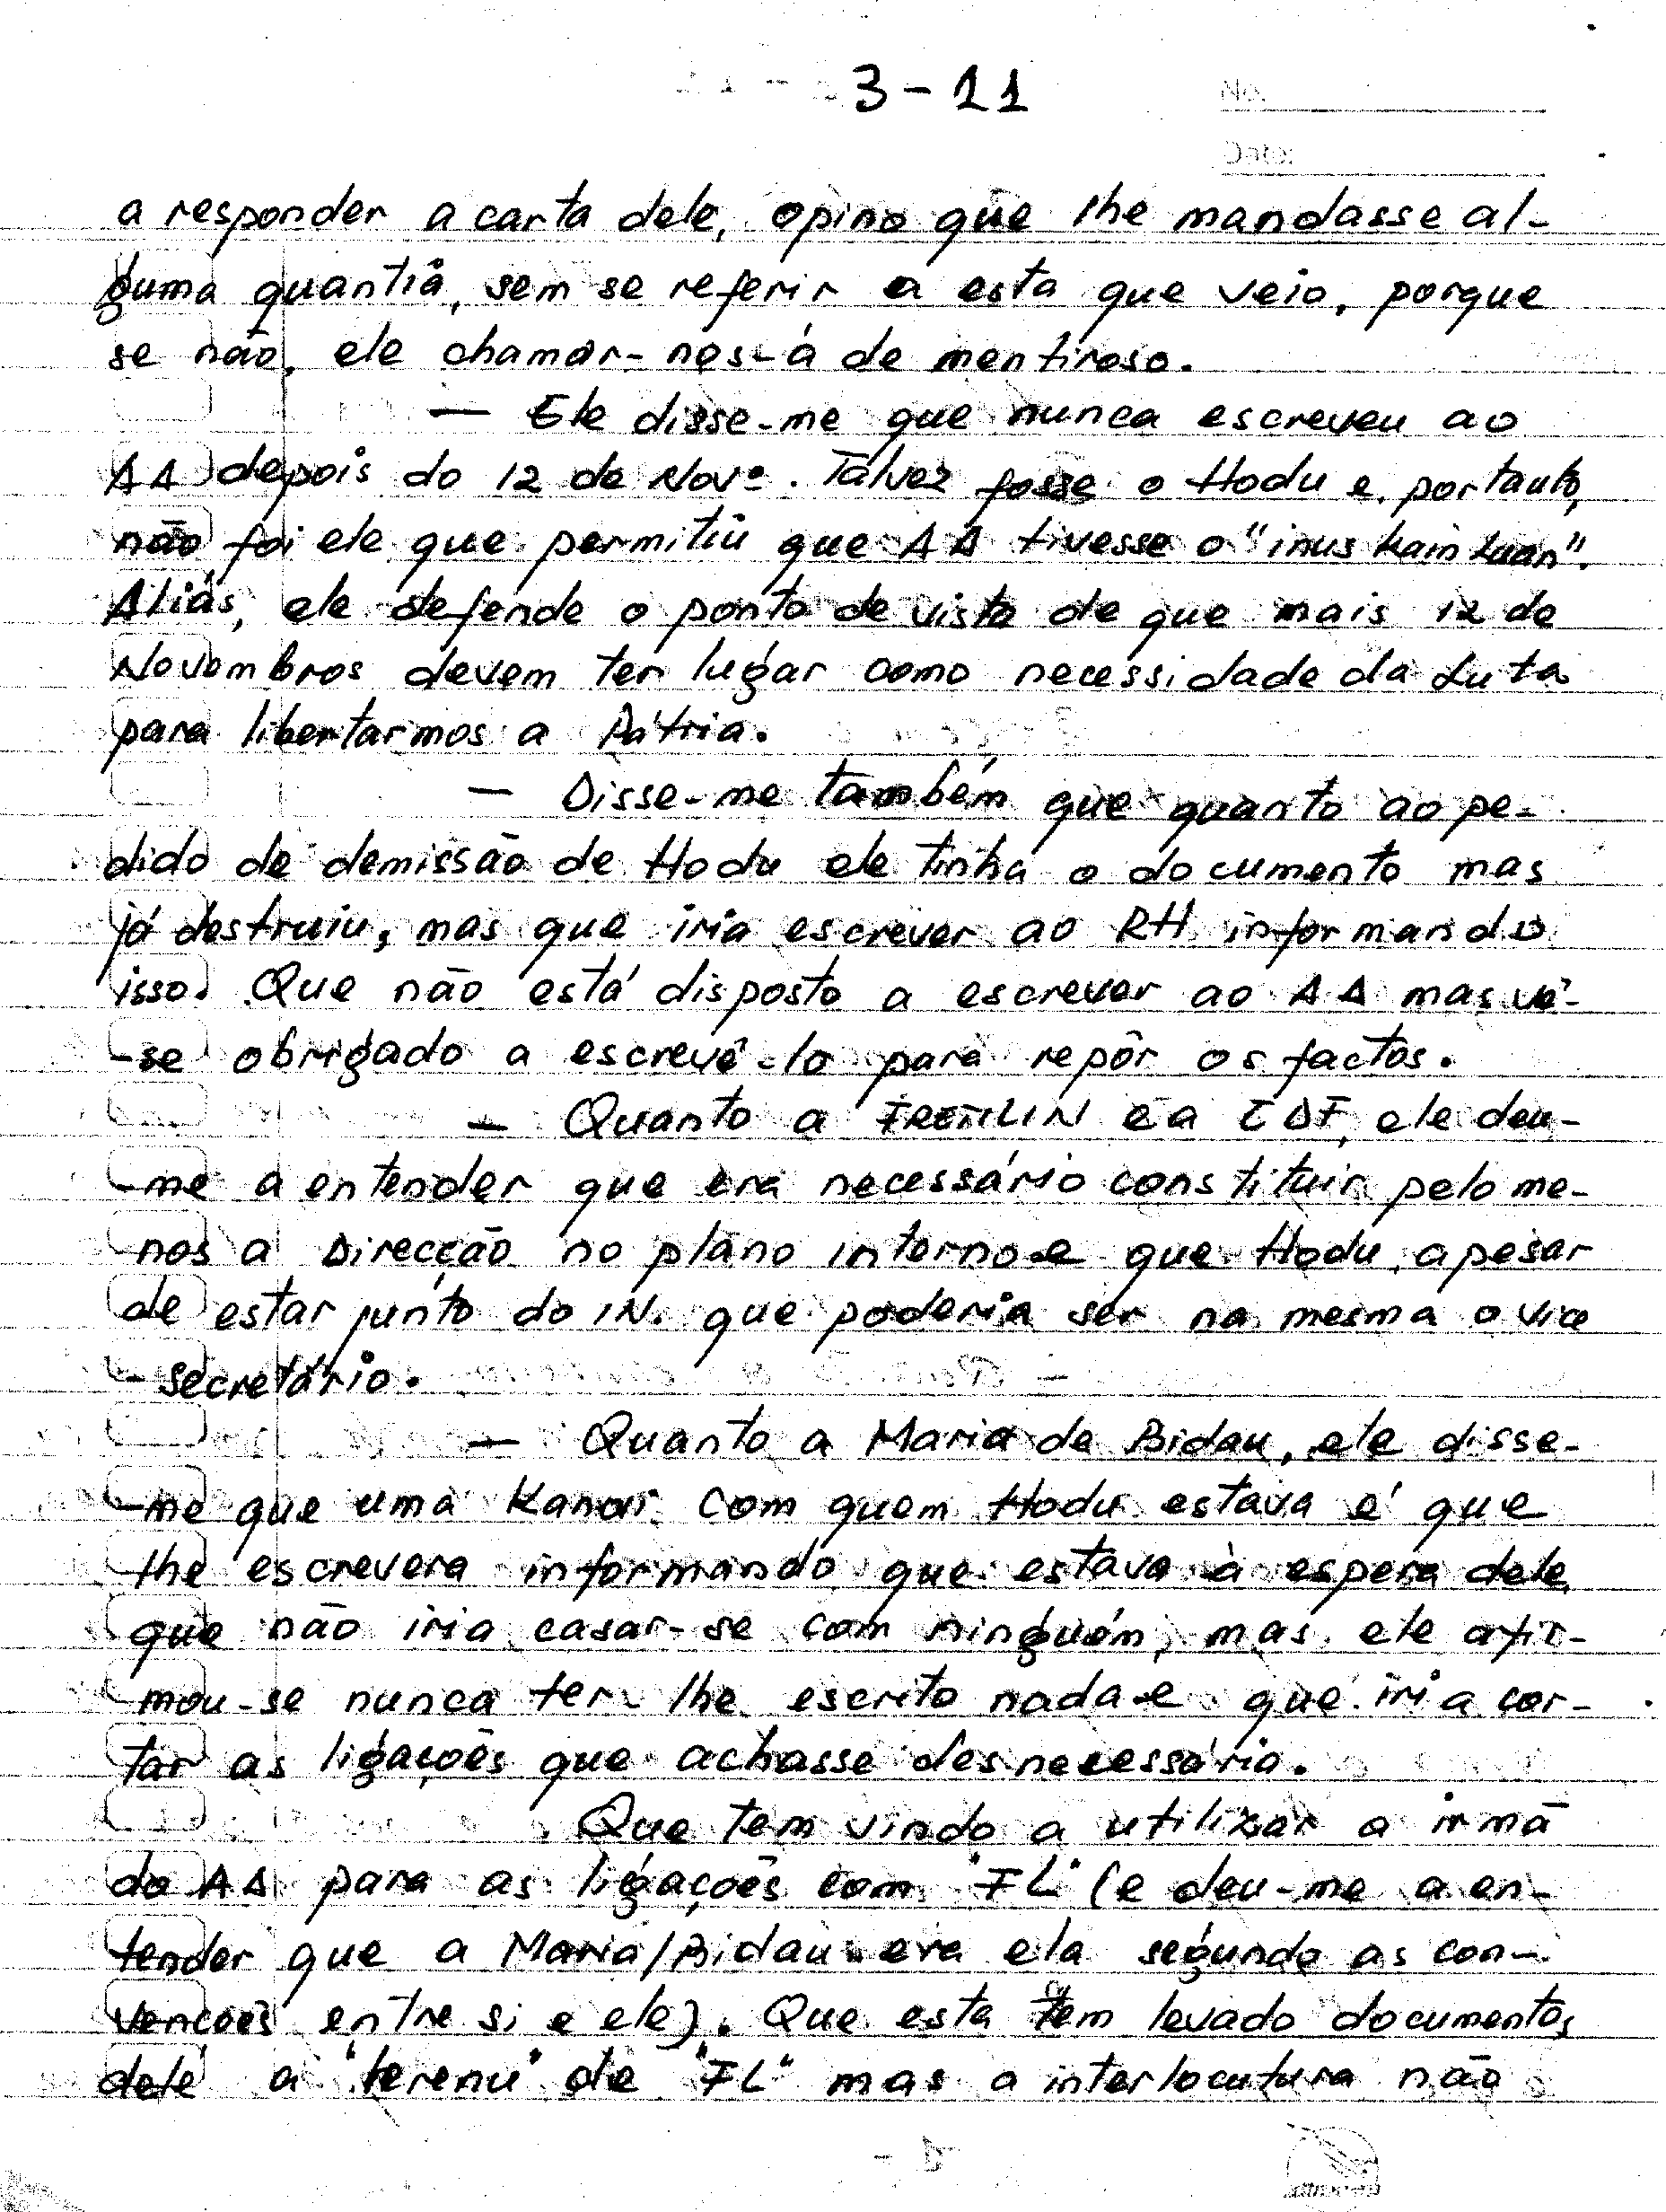 3-11
No.
Date:
a responder a carta dele, opino que lhe mandasse al-
guma quantia, sem se referir a esta que veio, porque
se não, ele chamar-nos-á de mentiroso.
— Ele disse-me que nunca escreveu ao
AA depois do 12 de Novº. Talvez fosse o Hodu e, portanto,
não foi ele que permitiu que AA tivesse o "inus kain Luan".
Aliás, ele defende o ponto de vista de que mais 12 de
Novembros devem ter lugar como necessidade da Luta
para libertarmos a Pátria.
— Disse-me também que quanto ao pe-
dido de demissão de Hodu ele tinha o documento mas
já destruiu, mas que iria escrever ao RH informando
isso. Que não está disposto a escrever ao AA mas vê-
-se obrigado a escrevê-lo para repôr os factos.
— Quanto a FRETILIN e a CDF, ele deu-
-me a entender que era necessário constituir pelo me-
nos a Direcção no plano interno e que Hodu, apesar
de estar junto do IN. que poderia ser na mesma o vice
-secretário.
— Quanto a Maria de Bidau, ele disse-
-me que uma Kanoi com quem Hodu estava é que
lhe escrevera informando que estava à espera dele,
que não iria casar-se com ninguém, mas ele afir-
mou-se nunca ter-lhe escrito nada e que iria cor-
tar as ligações que achasse desnecessária.
Que tem vindo a utilizar a irmã
do AA para as ligações com "FL" (e deu-me a en-
tender que a Maria/Bidau era ela segundo as con-
venções entre si e ele). Que esta tem levado documentos
dele a "terenu" de "FL" mas a interlocutura não